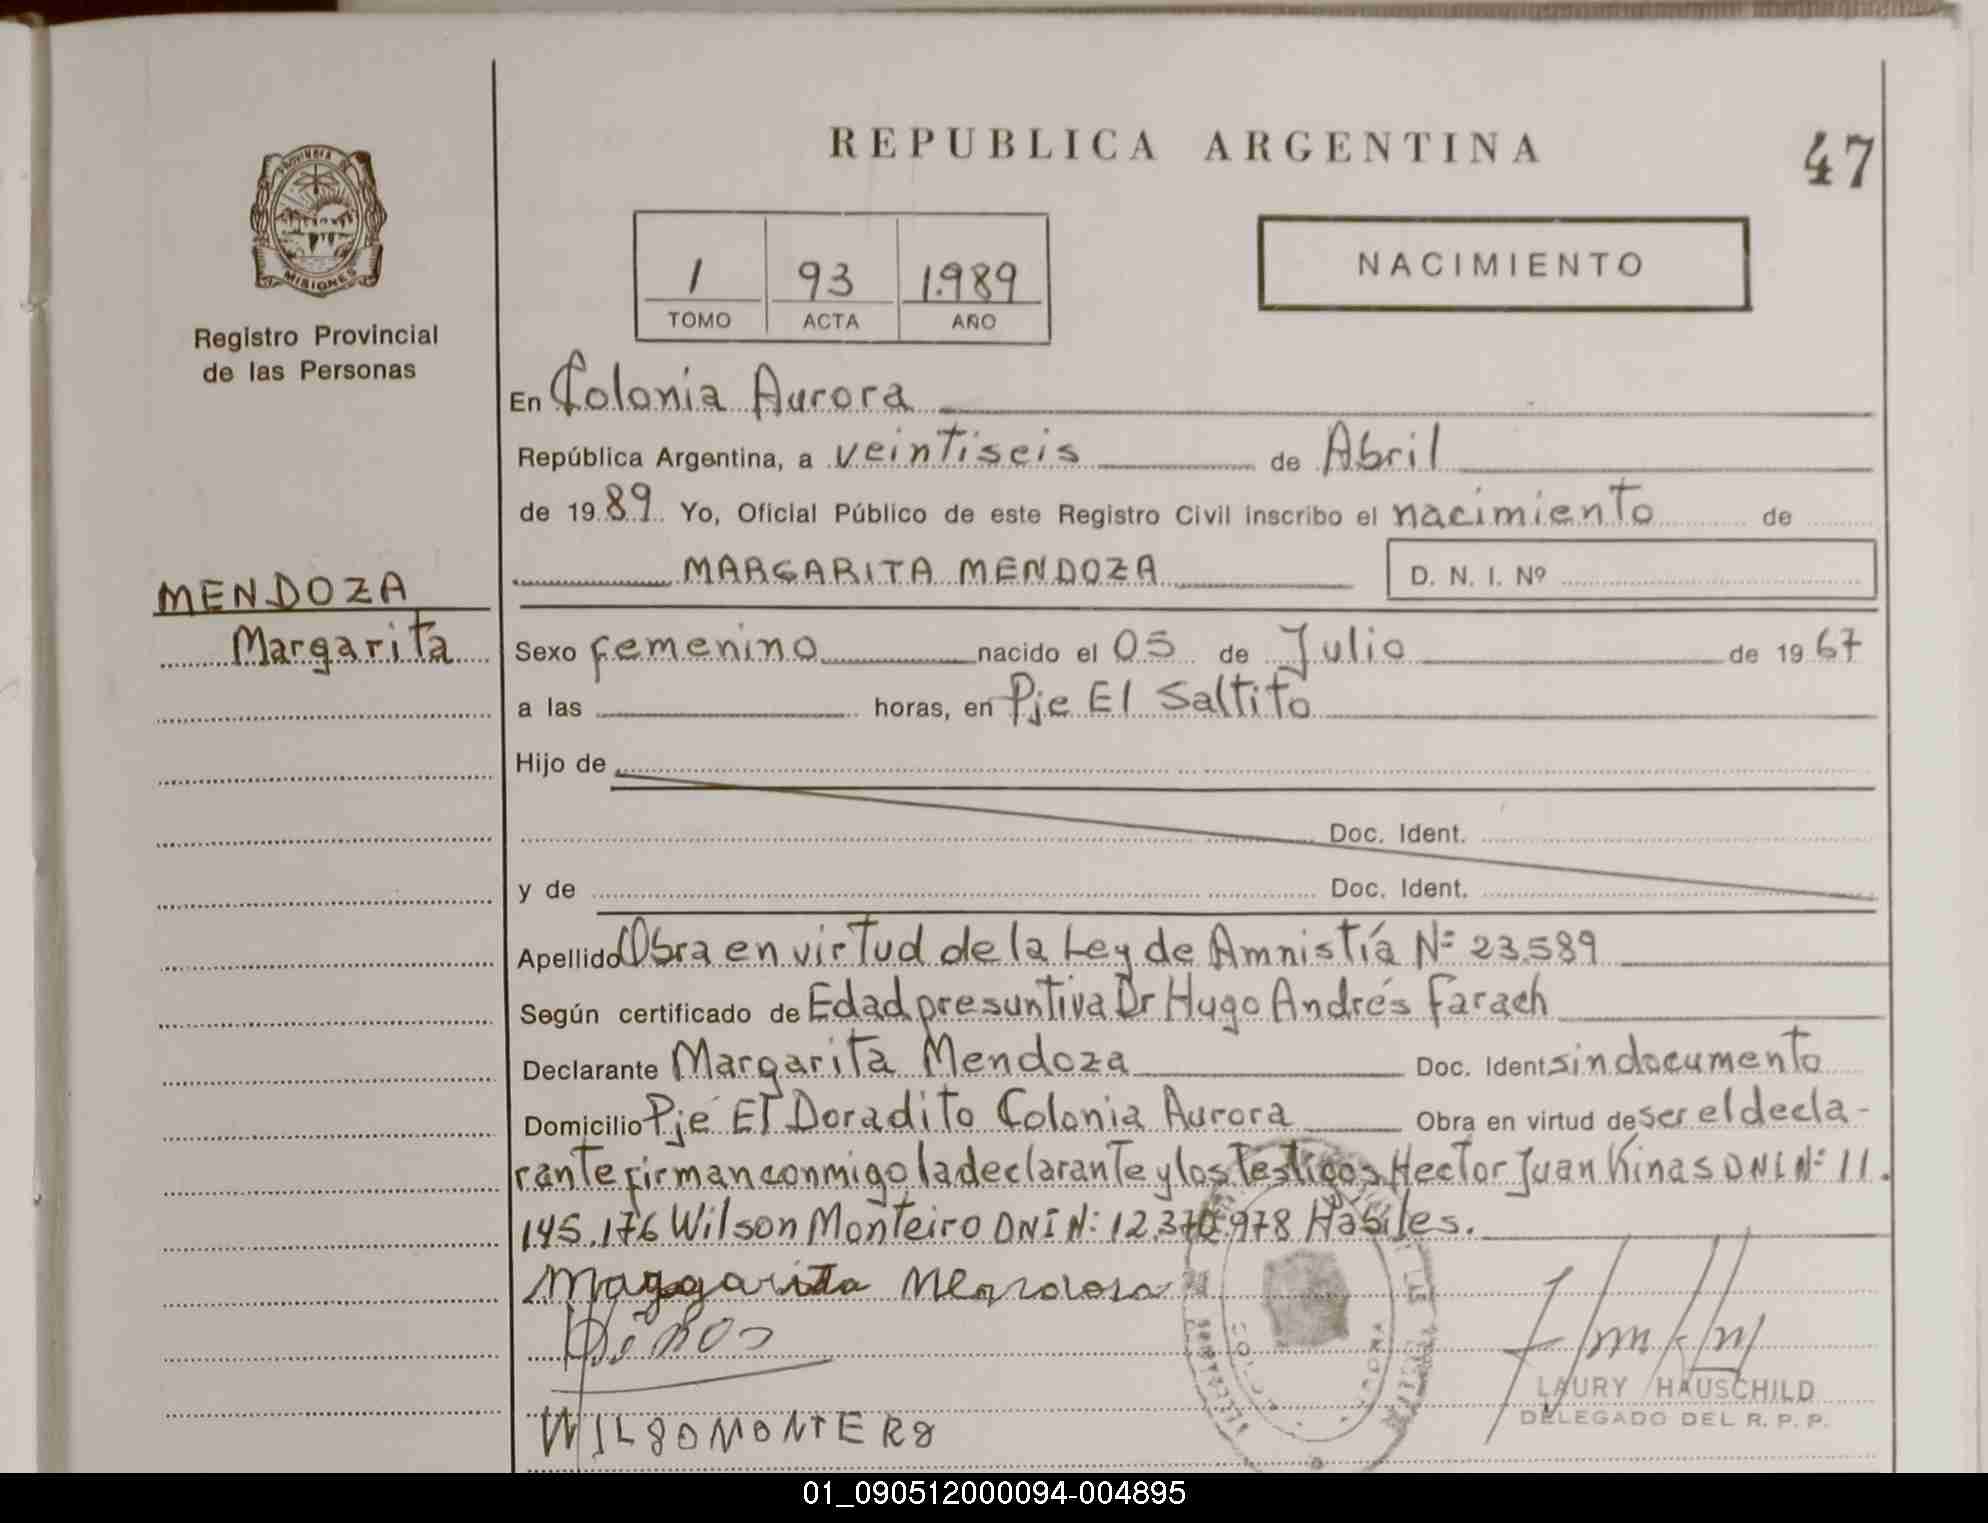 REPUBLICA ARGENTINA
47
PROVINCIA DE
MISIONES
Registro Provincial
de las Personas
1 93 1.989
TOMO ACTA AÑO
NACIMIENTO
En Colonia Aurora
República Argentina, a veintiseis de Abril
de 19 89 Yo, Oficial Público de este Registro Civil inscribo el nacimiento de
MARGARITA MENDOZA D. N. I. Nº
MENDOZA
Margarita
Sexo femenino nacido el 05 de Julio de 19 67
a las horas, en Pje El Saltito
Hijo de
Doc. Ident.
y de Doc. Ident.
Apellido Obra en virtud de la Ley de Amnistía Nº 23.589
Según certificado de Edad presuntiva Dr Hugo Andrés Farach
Declarante Margarita Mendoza Doc. Ident. sin documento
Domicilio Pje El Doradito Colonia Aurora Obra en virtud de ser el decla-
rante firman conmigo la declarante y los testigos Hector Juan Kinas DNI Nº 11.
145.176 Wilson Monteiro DNI Nº 12.370.978 Habiles.
WILSOMONTERO
LAURY HAUSCHILD
DELEGADO DEL R. P. P.
01_090512000094-004895